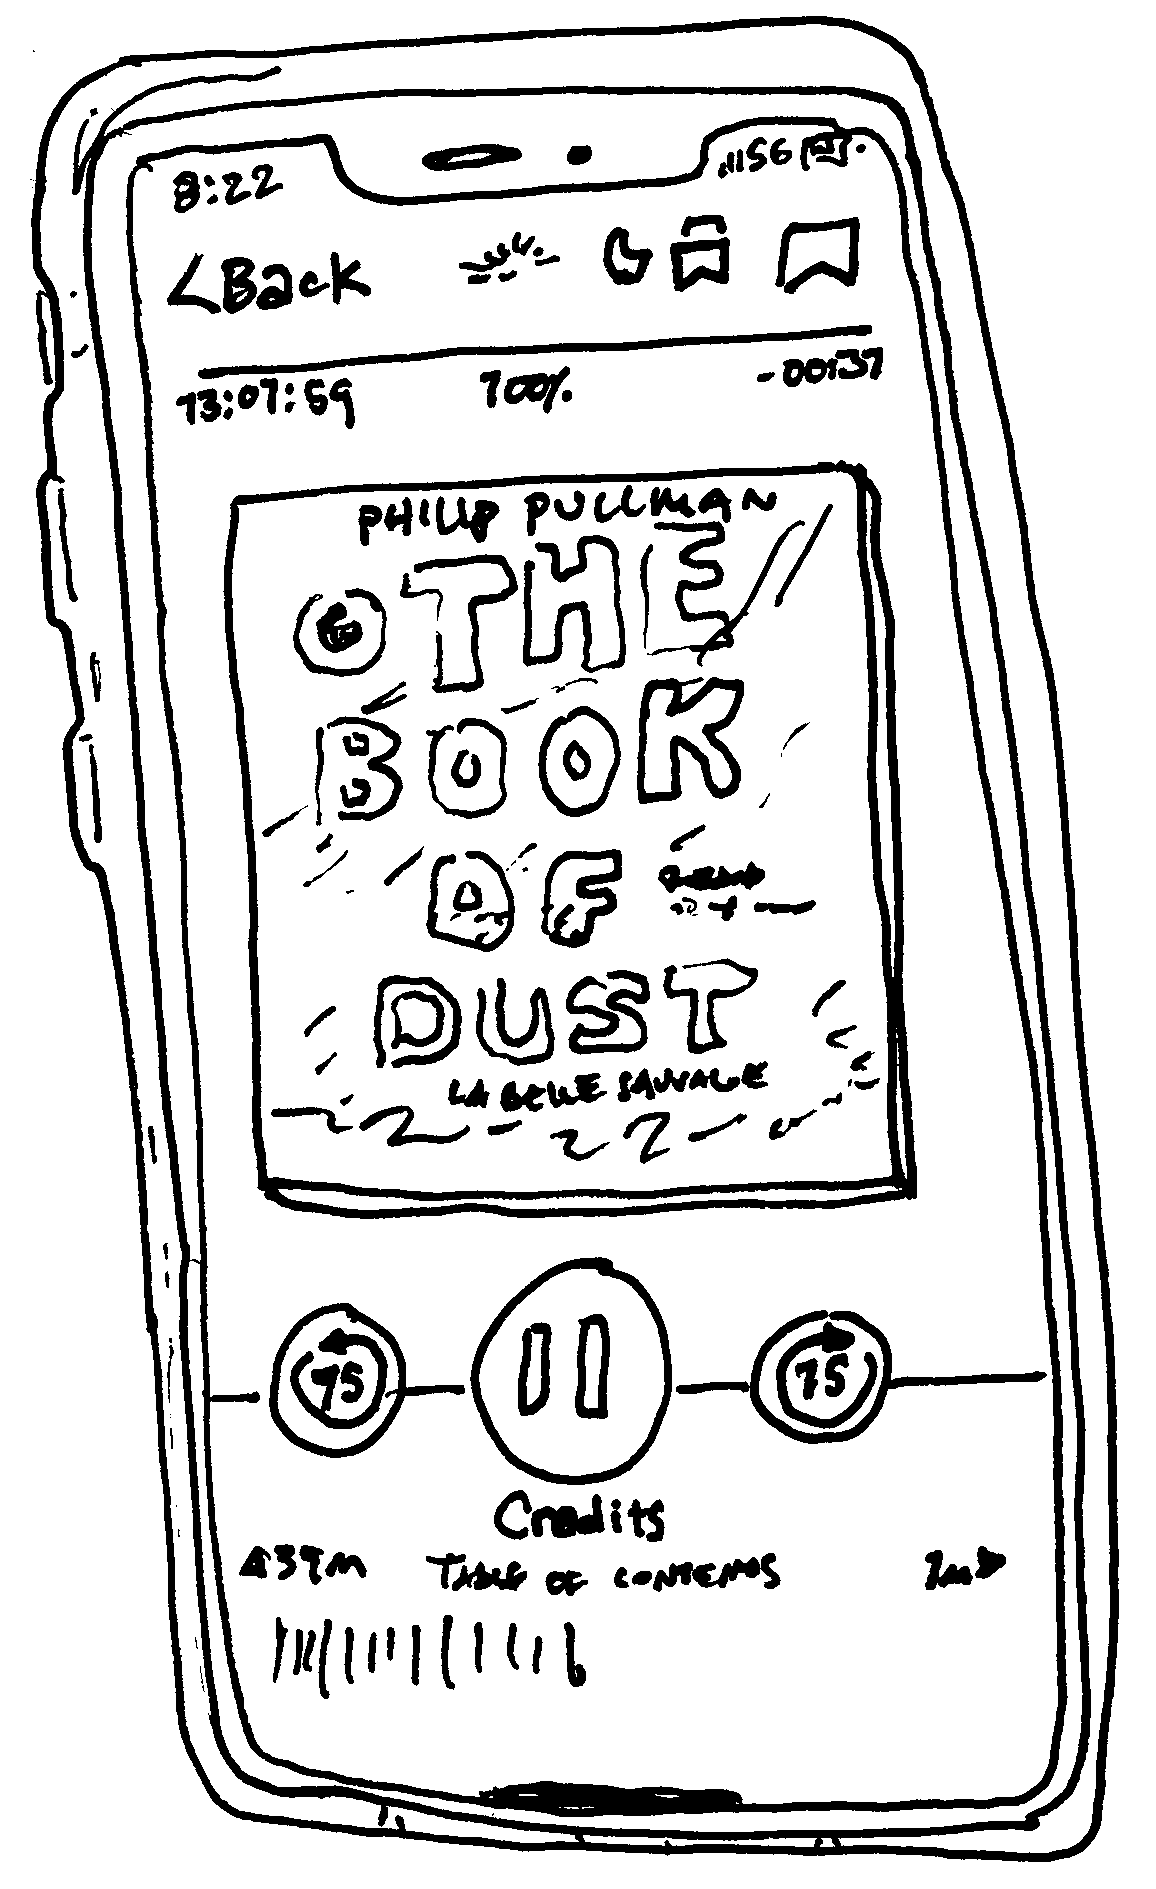 8:22 5G
<Back
13:07:59 100% -00:37
PHILIP PULLMAN
THE
BOOK
OF
DUST
LA BELLE SAUVAGE
15 15
Credits
39m TABLE OF CONTENTS 1m